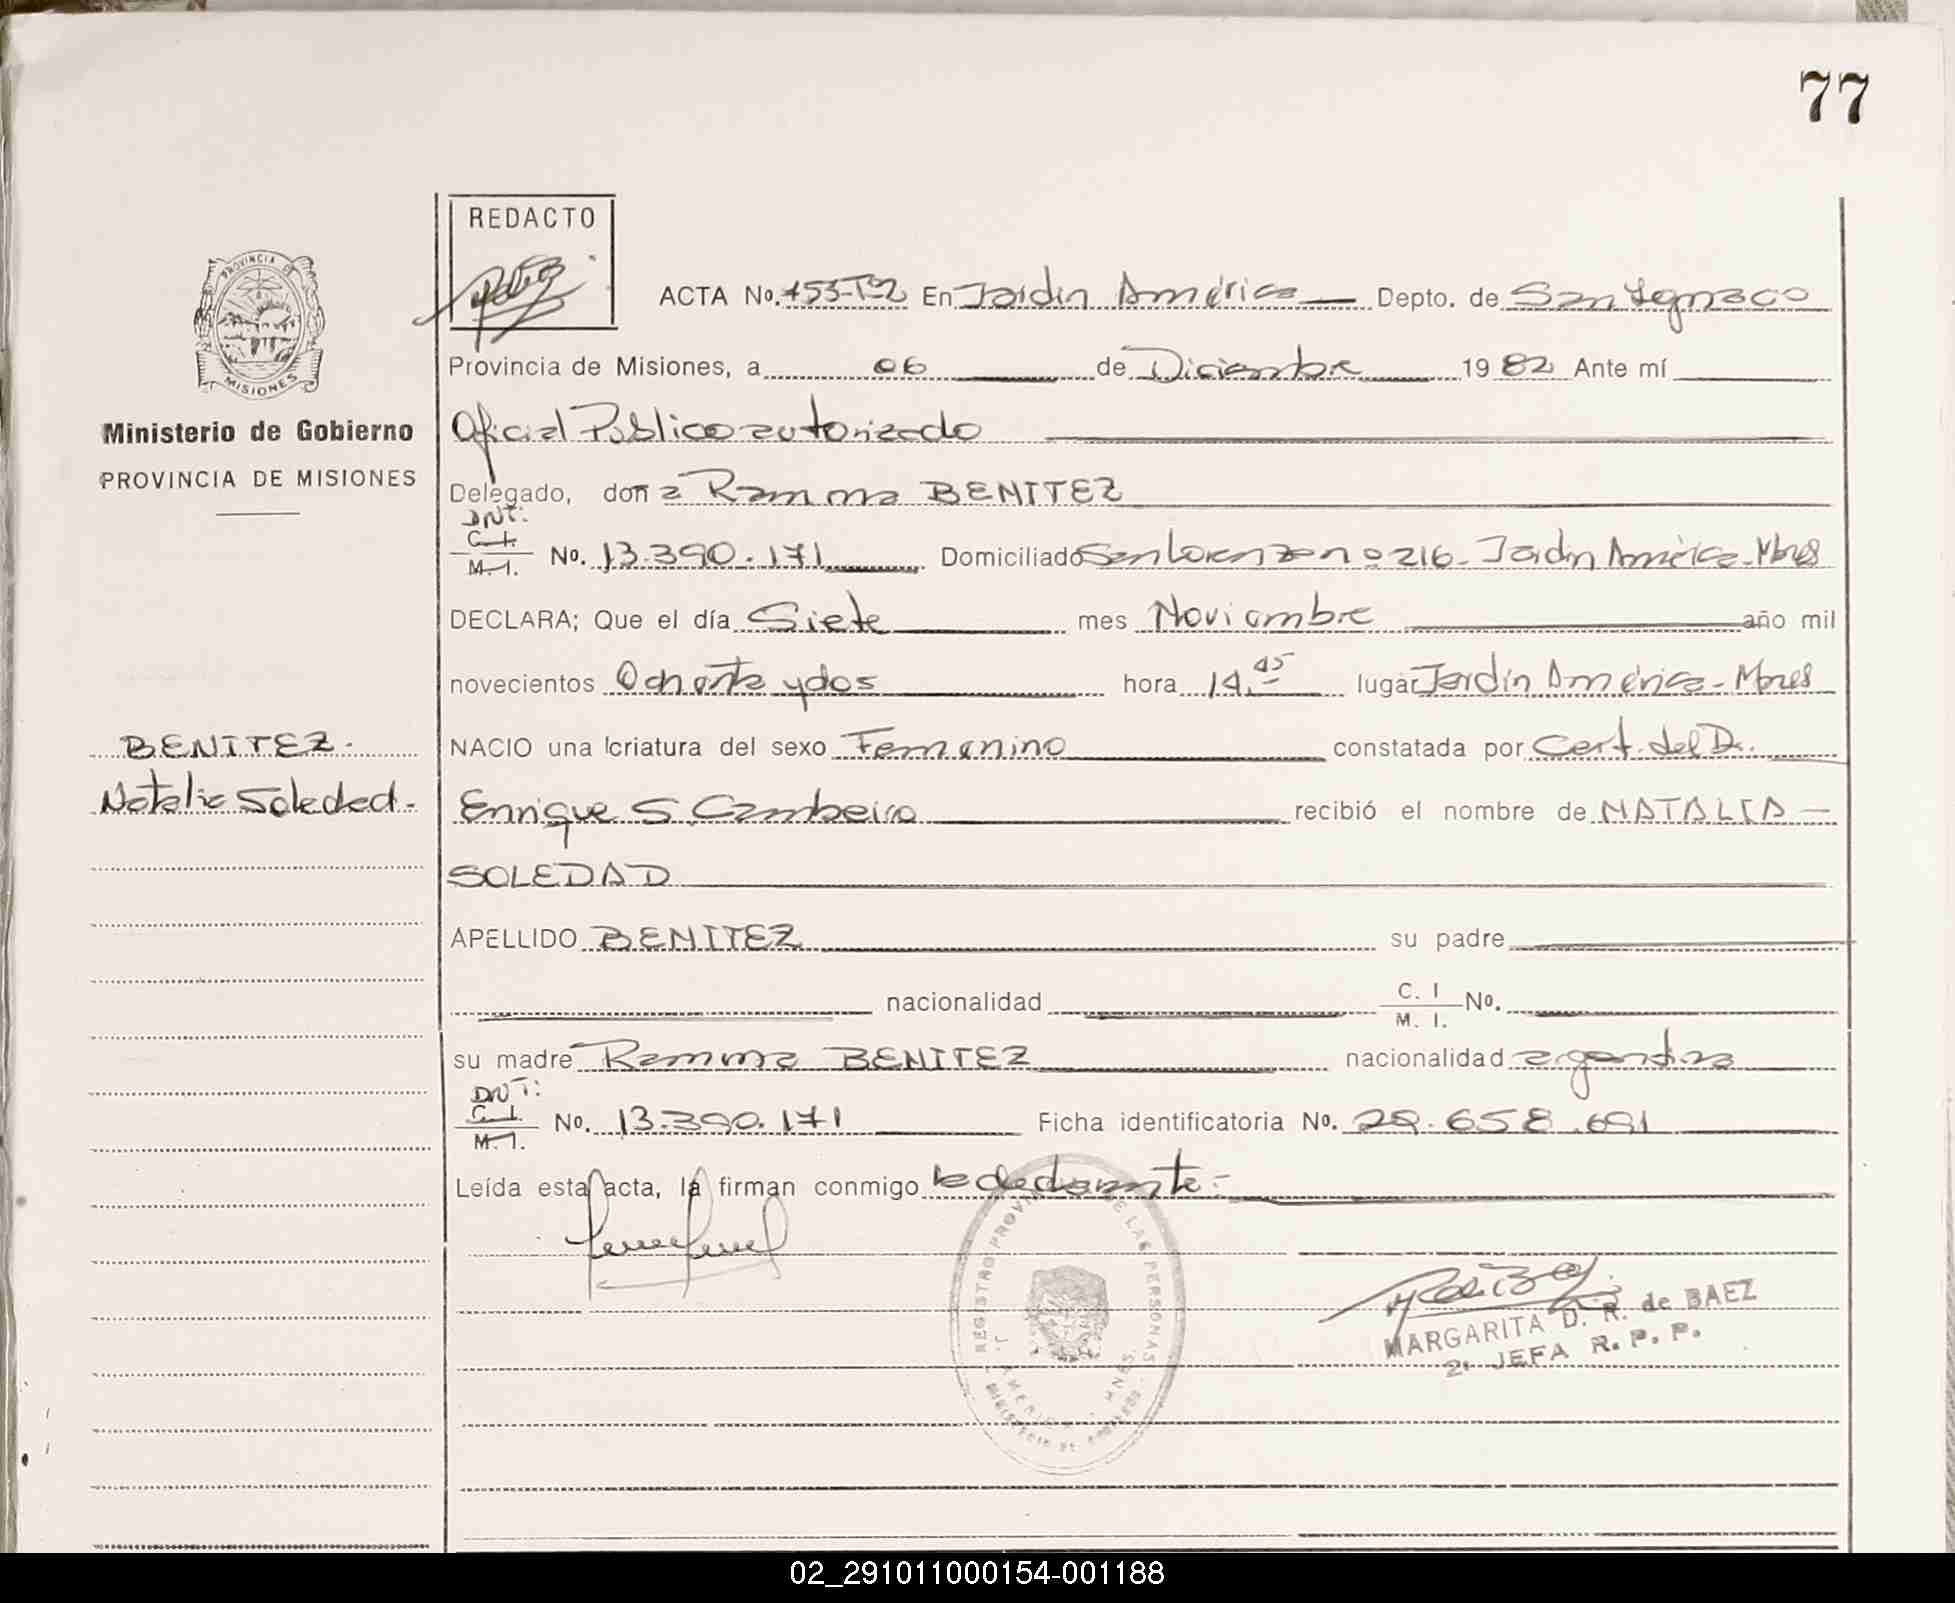 77
REDACTO
ACTA No. 453-T-2 En Jardin América Depto. de San Ignacio
PROVINCIA DE
MISIONES
Provincia de Misiones, a 06 de Diciembre 1982 Ante mí
Ministerio de Gobierno
PROVINCIA DE MISIONES
Oficial Público autorizado
Delegado, doña Ramona BENITEZ
DNI:
C.I.
M.I. No. 13.390.171 Domiciliado San Lorenzo nº 216 - Jardin América - Mnes
DECLARA; Que el día Siete mes Noviembre año mil
novecientos Ochenta y dos hora 14.45 lugar Jardín América - Mnes
BENITEZ.
Natalia Soledad.
NACIO una criatura del sexo Femenino constatada por Cert. del Dr.
Enrique S. Cambeiro recibió el nombre de NATALIA -
SOLEDAD
APELLIDO BENITEZ su padre
nacionalidad C. I
M. I. No.
su madre Ramona BENITEZ nacionalidad argentina
DNI:
C.I.
M.I. No. 13.390.171 Ficha identificatoria No. 29.658.691
Leída esta acta, la firman conmigo la declarante.-
REGISTRO PROVINCIAL DE LAS PERSONAS
J. AMERICA - MNES.
MINISTERIO DE GOBIERNO
MARGARITA D. R. de BAEZ
2. JEFA R. P. P.
02_291011000154-001188